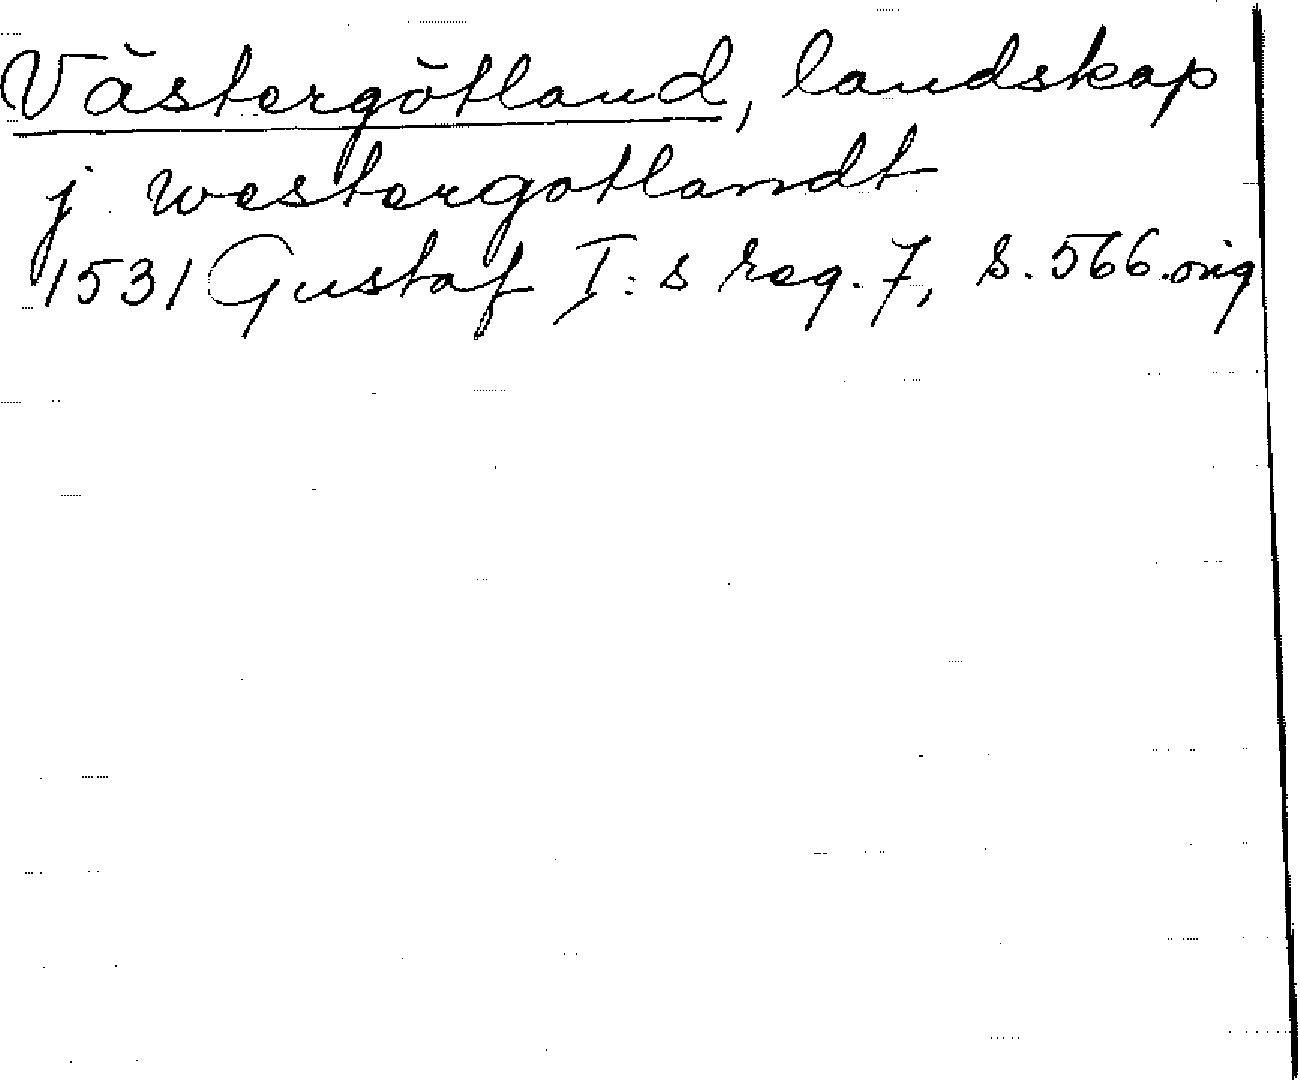 Västergötland, landskap
j westergotlandt
1531 Gustaf I:s reg. 7, s. 566. orig